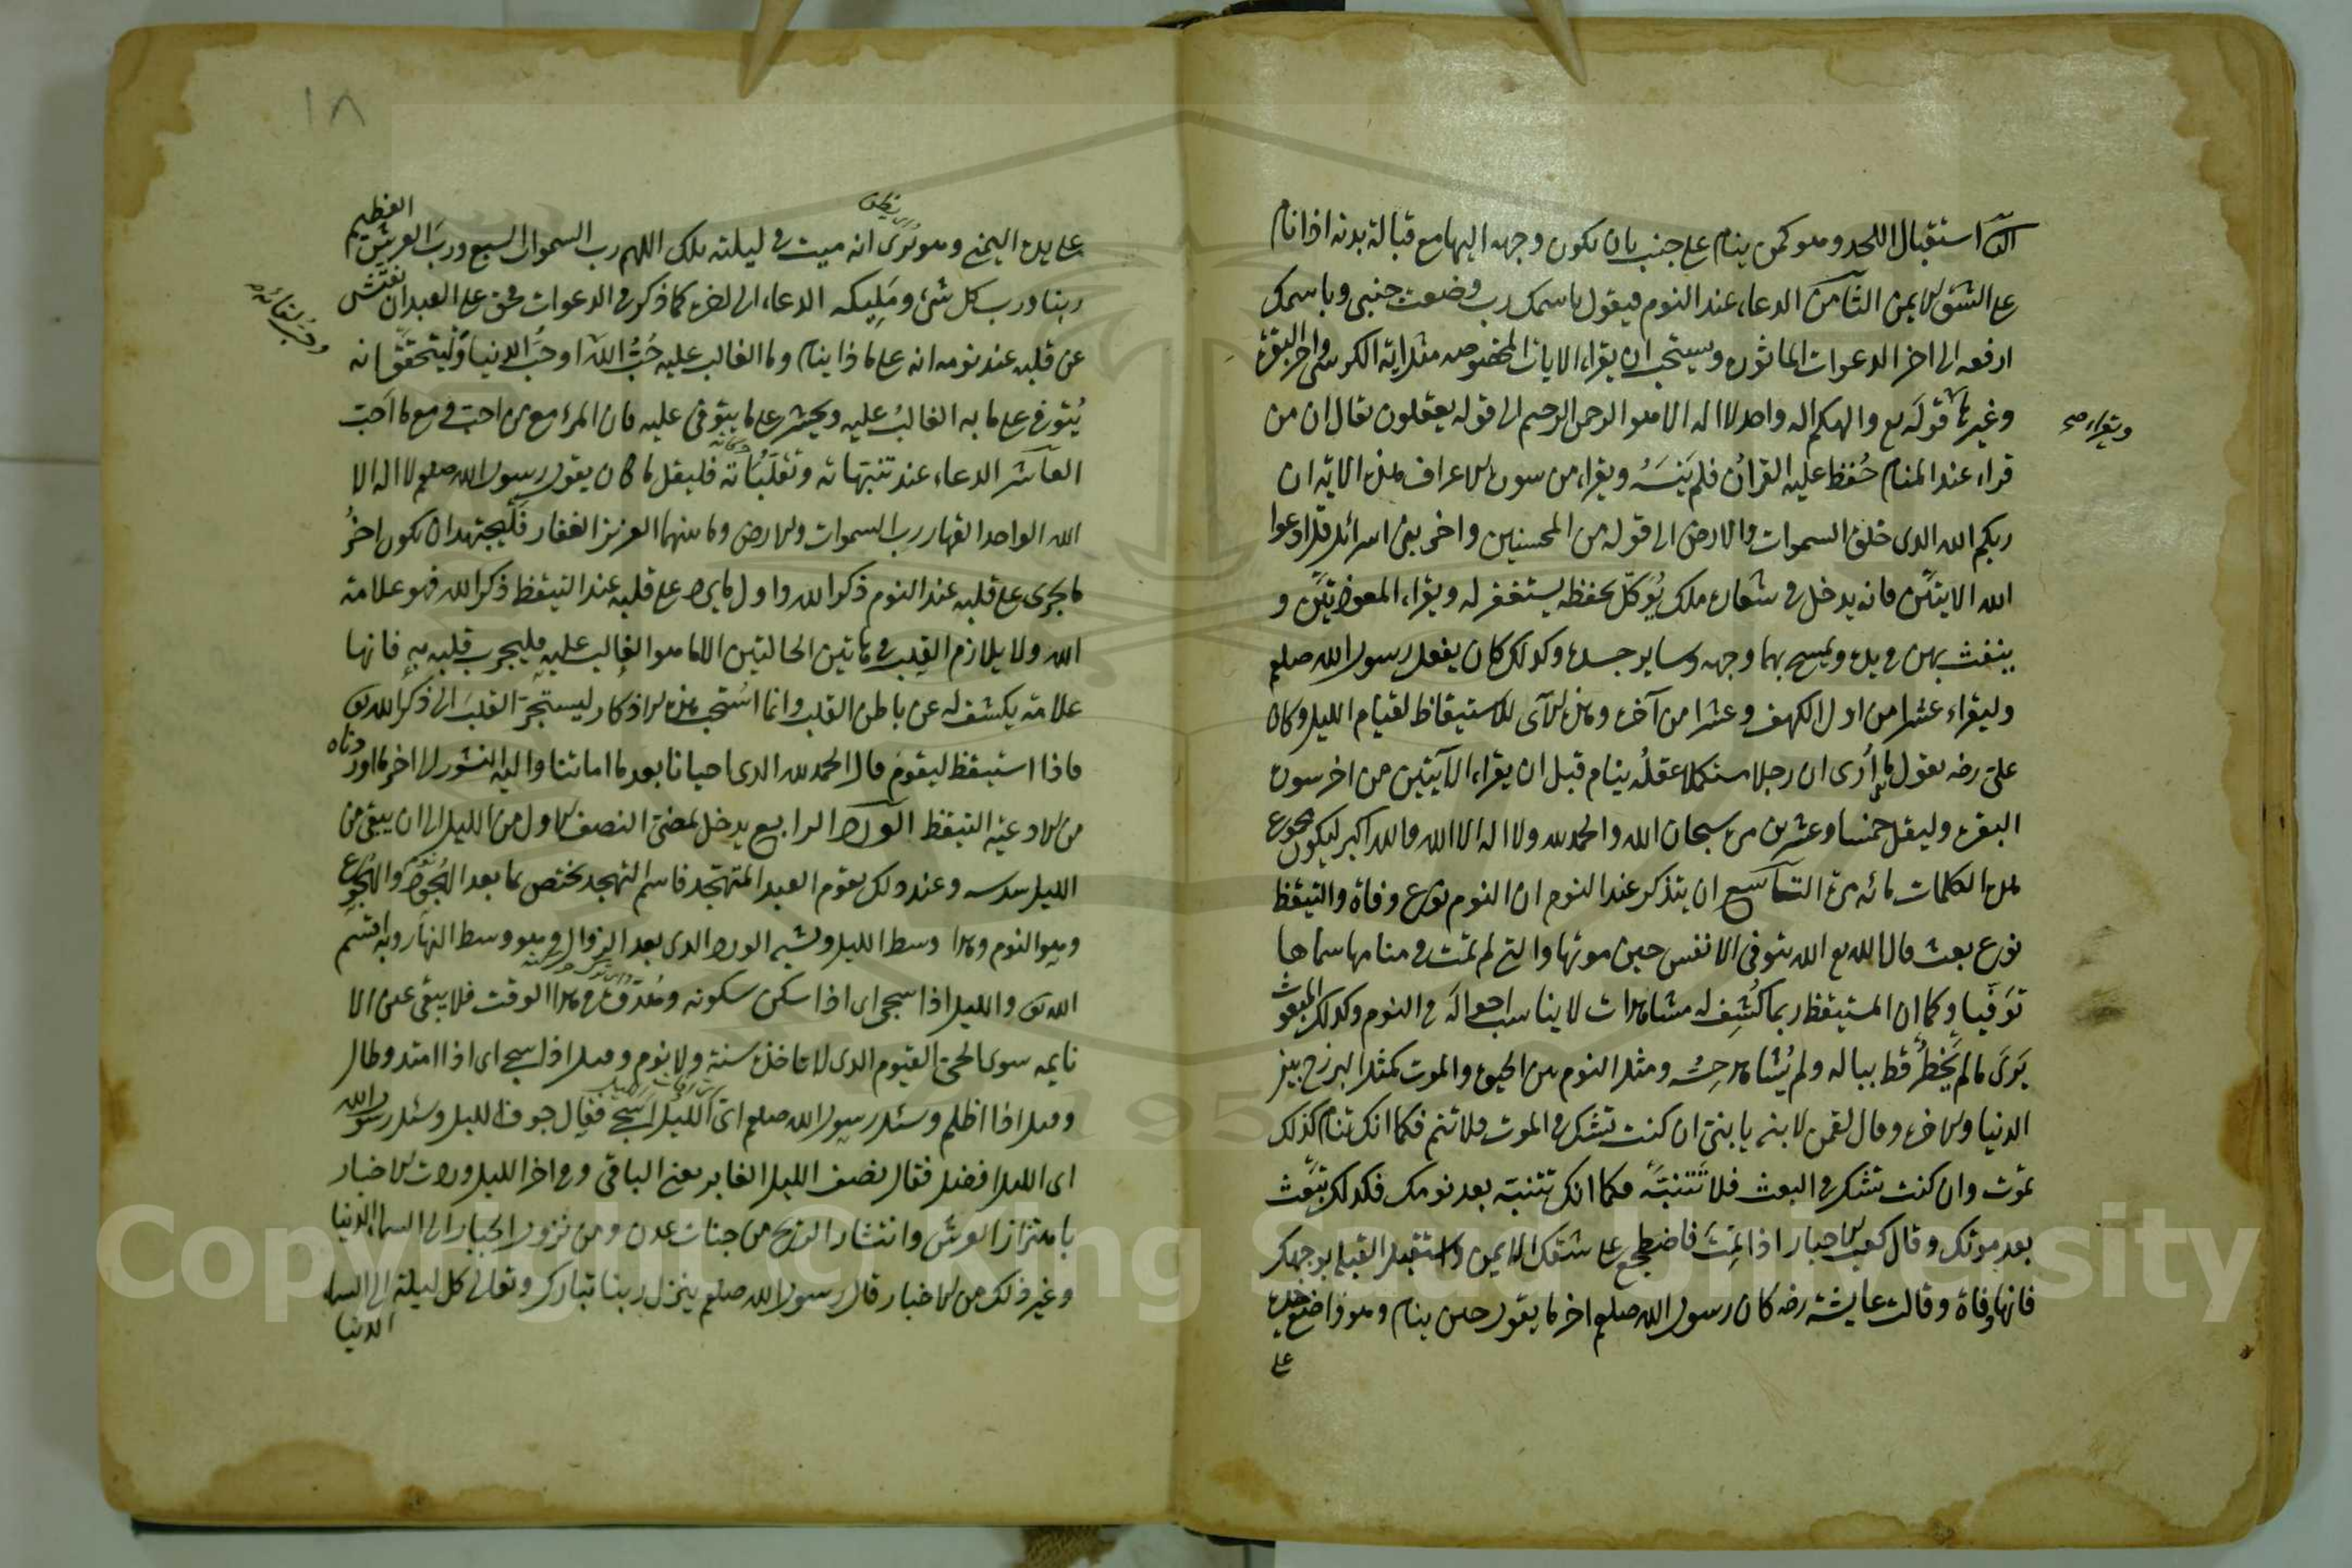 الثانى استقبال اللحد وهو كمن ينام على جنب بان يكون وجهه اليها مع قبالة بدنه اذا نام
على الشق الايمن الثامن الدعاء عند النوم فيقول باسمك رب وضعت جنبى وباسمك
ارفعه الى اخر الدعوات الماثورة ويستحب ان يقراء الايات المخصوصه مثل اية الكرسى واخر البقرة
وغيرها قوله تع والهكم اله واحد لا اله الا هو الرحمن الرحيم الى قوله يعقلون يقال ان من
ويقراء صح
قراء عند المنام حُفظ عليه القرآن فلم ينسَهُ ويقراء من سورة الاعراف هذه الاية ان
ربكم الله الذى خلق السموات والارض الى قوله من المحسنين واخر بنى اسرائل قل ادعوا
الله الايتين فانه يدخل فى شعاره ملك يُوكّل بحفظه يستغفر له ويقراء المعوذتين و
ينفث بهن فى يده ويمسح بهما وجهه وساير جسده وكذلك كان يفعل رسول الله صلعم
وليقراء عشرا من اول الكهف وعشرا من آخره وهذه الآى للاستيقاظ لقيام الليل وكان
على رضه يقول ما أرى ان رجلا مستكملا عقلُه ينام قبل ان يقراء الآيتين من اخر سورة
البقرة وليقل خمسا وعشرين مرة سبحان الله والحمد لله ولا اله الا الله والله اكبر ليكون مجموع
هذه الكلمات مائه مرة التاسع ان يتذكر عند النوم ان النوم نوع وفاة والتيقظ
نوع بعث قال الله تع الله يتوفى الانفس حين موتها والتى لم تمت فى منامها سماها
توفّيا وكما ان المستيقظ ربما كُشِف له مشاهدات لا يناسب احواله فى النوم وكذلك المبعوث
يَرَى ما لم يَخطُر قط بباله ولم يُشاهد حِسُّه ومثل النوم بين الحيوة والموت كمثل البرزخ بين
الدنيا والاخرة وقال لقمن لابنه يا بنى ان كنت تشك فى الموت فلا تنم فكما انك تنام كذلك
تموت وان كنت تشك فى البعث فلا تَنْتَبِه فكما انك تنتبه بعد نومك فكذلك تبعث
بعد موتك وقال كعب الاحبار اذا نِمْتَ فاضطجع على شقك الايمن واستقبل القبلة بوجهك
فانها وفاة وقالت عايشه رضه كان رسول الله صلعم اخر ما يقول حين ينام وهو واضع خده
على
١٨
على يده اليمنى وهو يُرَى انه ميت فى ليلته تلك اللهم رب السموات السبع ورب العرش العظيم
ربنا ورب كل شئ ومَلِيكه الدعاء الى اخره كما ذكر فى الدعوات فحق على العبد ان يفتش
عن قلبه عند نومه انه على ماذا ينام وما الغالب عليه حُبُّ الله او حبُّ الدنيا وليتحقق انه
يُتوفى على ما به الغالبُ عليه ويحشر على ما يتوفى عليه فان المرء مع من احب ومع ما احب
العاشر الدعاء عند تنبهاته وتقلباته فليقل ما كان يقول رسول الله صلعم لا اله الا
الله الواحد القهار رب السموات والارض وما بينهما العزيز الغفار فليجتهد ان يكون اخرُ
ما يجرى على قلبه عند النوم ذكر الله واول ما يرد على قلبه عند التيقظ ذكر الله فهو علامة
الله ولا يلازم القلب فى هاتين الحالتين الا ما هو الغالب عليه فليجرب قلبه به فانها
علامة يكشف له عن باطن القلب وانما اسُتحب هذه الاذكار ليستجرّ القلبَ الى ذكر الله تع
فاذا استيقظ ليقوم قال الحمد لله الذى احيانا بعد ما اماتنا واليه النشور الى اخر ما اوردناه
من الادعية التيقظ الورد الرابع يدخل بمضى النصف الاول من الليل الى ان يبقى من
الليل سدسه وعند ذلك يقوم العبد المتهجد فاسم التهجد يختص بما بعد الهجود والهجوع
وهو النوم وهذا وسط الليل ويشبه الورد الذى بعد الزوال وهو وسط النهار وبه اقسم
الله تع والليل اذا سجى اى اذا سكن سكونه وهُدُوّه فى هذا الوقت فلا يبقى عين الا
نايمه سوى الحى القيوم الذى لا تاخذه سنة ولا نوم وقيل اذا سجى اى اذا امتد وطال
وقيل اذا اظلم وسئل رسول الله صلعم اىّ الليل اسمع فقال جوف الليل وسئل رسول الله
اى الليل افضل فقال نصف الليل الغابر يعنى الباقى وفى اخر الليل وردت الاخبار
باهتزاز العرش وانتشار الريح من جنات عدن ومن نزول الجبار الى السماء الدنيا
وغير ذلك من الاخبار قال رسول الله صلعم ينزل ربنا تبارك وتعالى كل ليلة الى السماء
الدنيا
Copyright © King Saud University
195